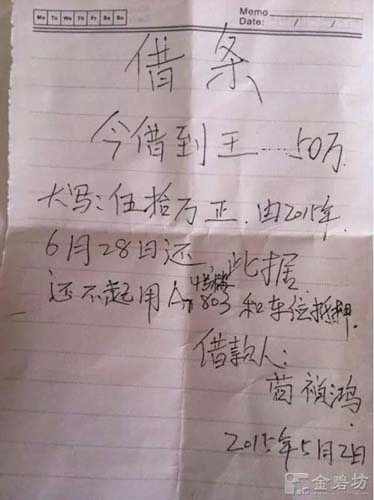 Memo
Mo Tu We Th Fr Sa Su
Date: / /
借条
今借到王....50万.
大写:伍拾万正.由2015年
6月28日还,此据.
还不起用A 803和车位抵押.
借款人:
商祯鸿.
2015年5月2日
金碧坊